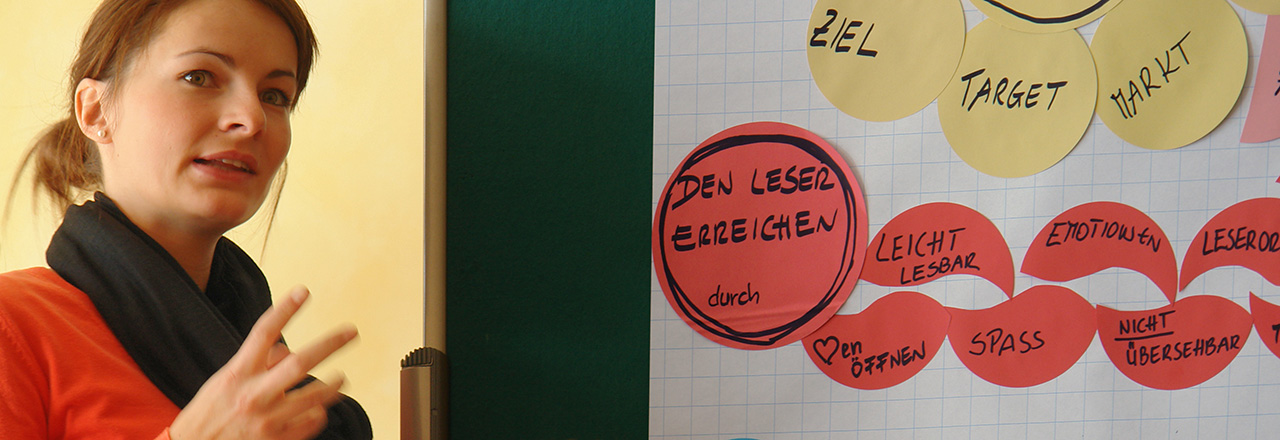 ZIEL
TARGET
MARKT
DEN LESER
ERREICHEN
durch
LEICHT
LESBAR
EMOTIONEN
LESEROR
♡en
ÖFFNEN
SPASS
NICHT
ÜBERSEHBAR